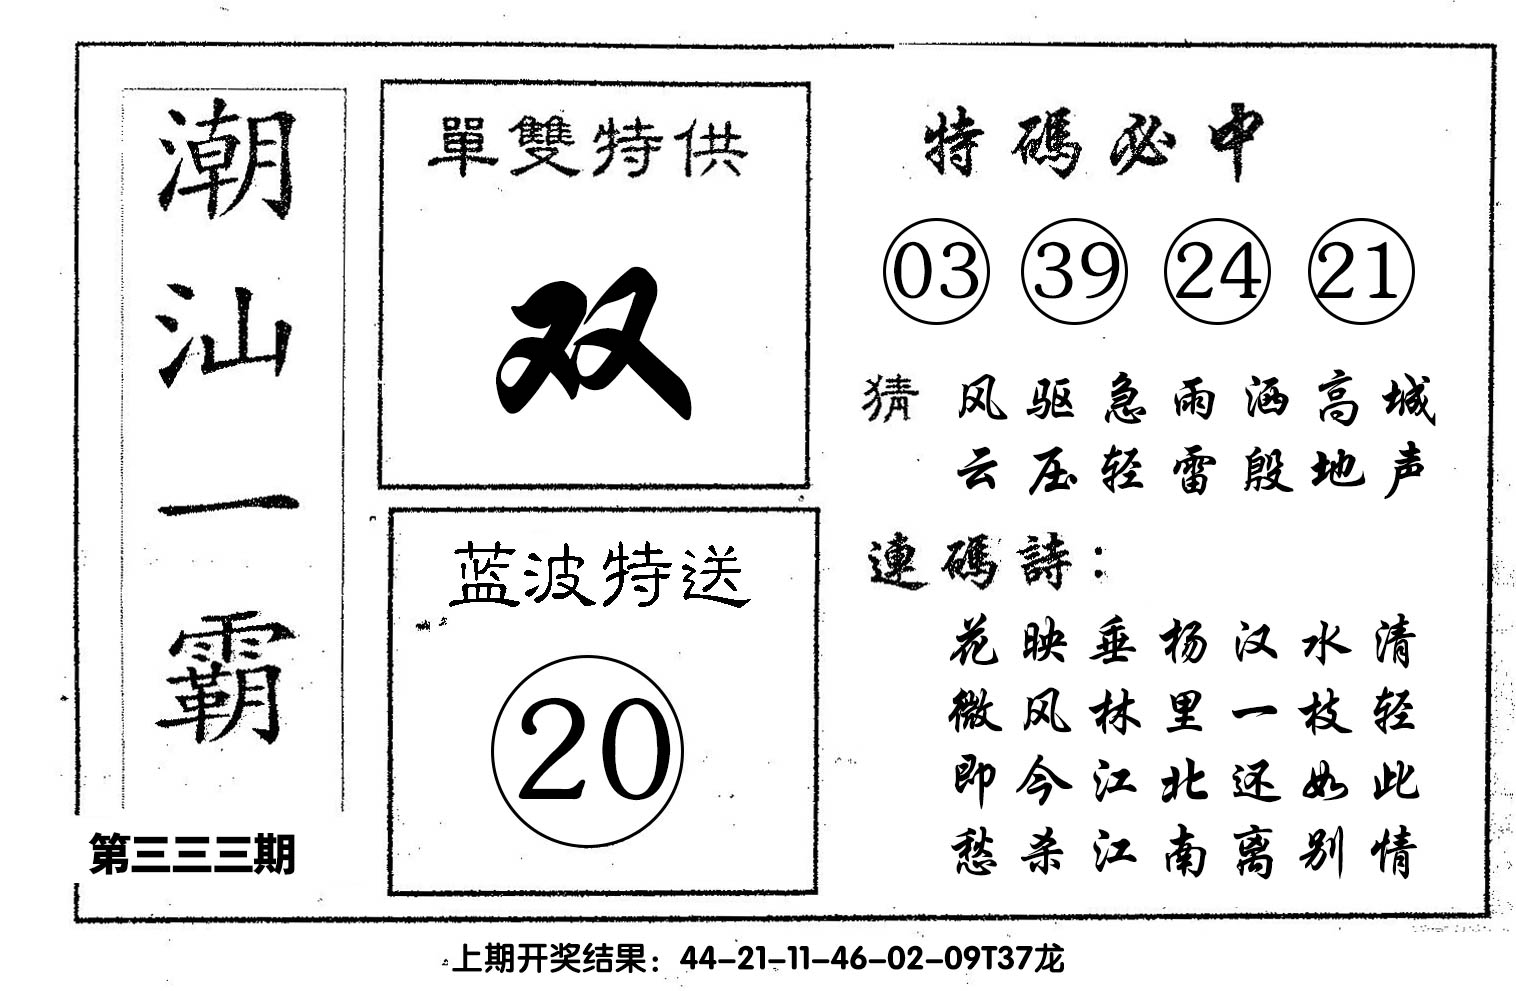 潮汕一霸
第三三三期
單雙特供
双
蓝波特送
20
特碼必中
03 39 24 21
猜 风驱急雨洒高城
云压轻雷殷地声
連碼詩：
花映垂杨汉水清
微风林里一枝轻
即今江北还如此
愁杀江南离别情
上期开奖结果：44-21-11-46-02-09T37龙